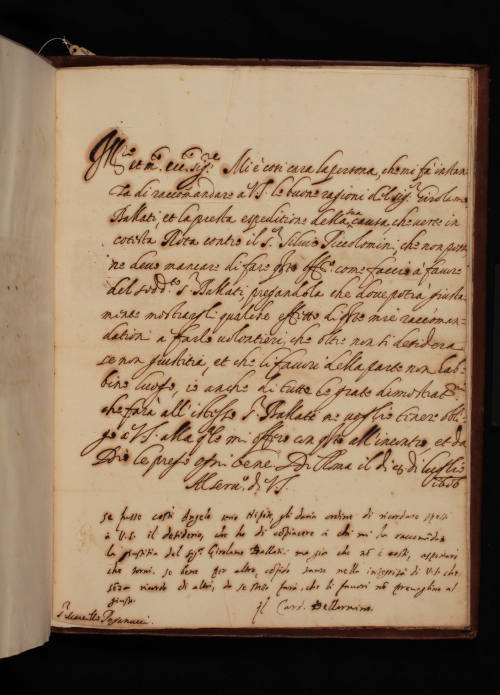 Ill.re et m.to ecc.te sig.re Mi è così cara la persona, che mi fà instan
za di raccomandare à VS le buone ragioni del sig.r Girolamo
Ballati, et la presta espeditione della sua causa, che verte in
cotesta Rota contro il S.r Silvio Piccolomini, che non posso
ne devo mancare di fare q.sto off.o come faccio à favore
del sudd.to S.r Ballati, pregandola che dove potrà giusta
mente mostrarli qualche effetto di q.ste mie raccoman
dationi à farlo volentieri, che oltre non si desidera
se non giustitia, et che li favori della parte non hab
bino luogo, io anche di tutte le grate dimostrat.ni
che farà all'istesso S.r Ballati ne voglio tenere obli
go à VS. alla q.le mi offero con q.sto all'incontro, et da
Dio le prego ogni bene. Di Roma il di 28 di luglio
1616
Al serv.o di VS.
Se fusse costì Angelo mio Nipote, gli daria ordine di ricordare spesso
à V.S. il desiderio, che ho di compiacere à chi mi ha raccomandata
la giustitia del sig.r Girolamo Ballati: ma già che nō è costì, aspettarò
che torni. se bene per altro, confido tanto nella integrità di V.S. che
senza ricordo di altri, da se stessa farà, che li favori nō prevaglino al
giusto.
Il Card. Bellarmino.
S.r Marcello Pepenucci.